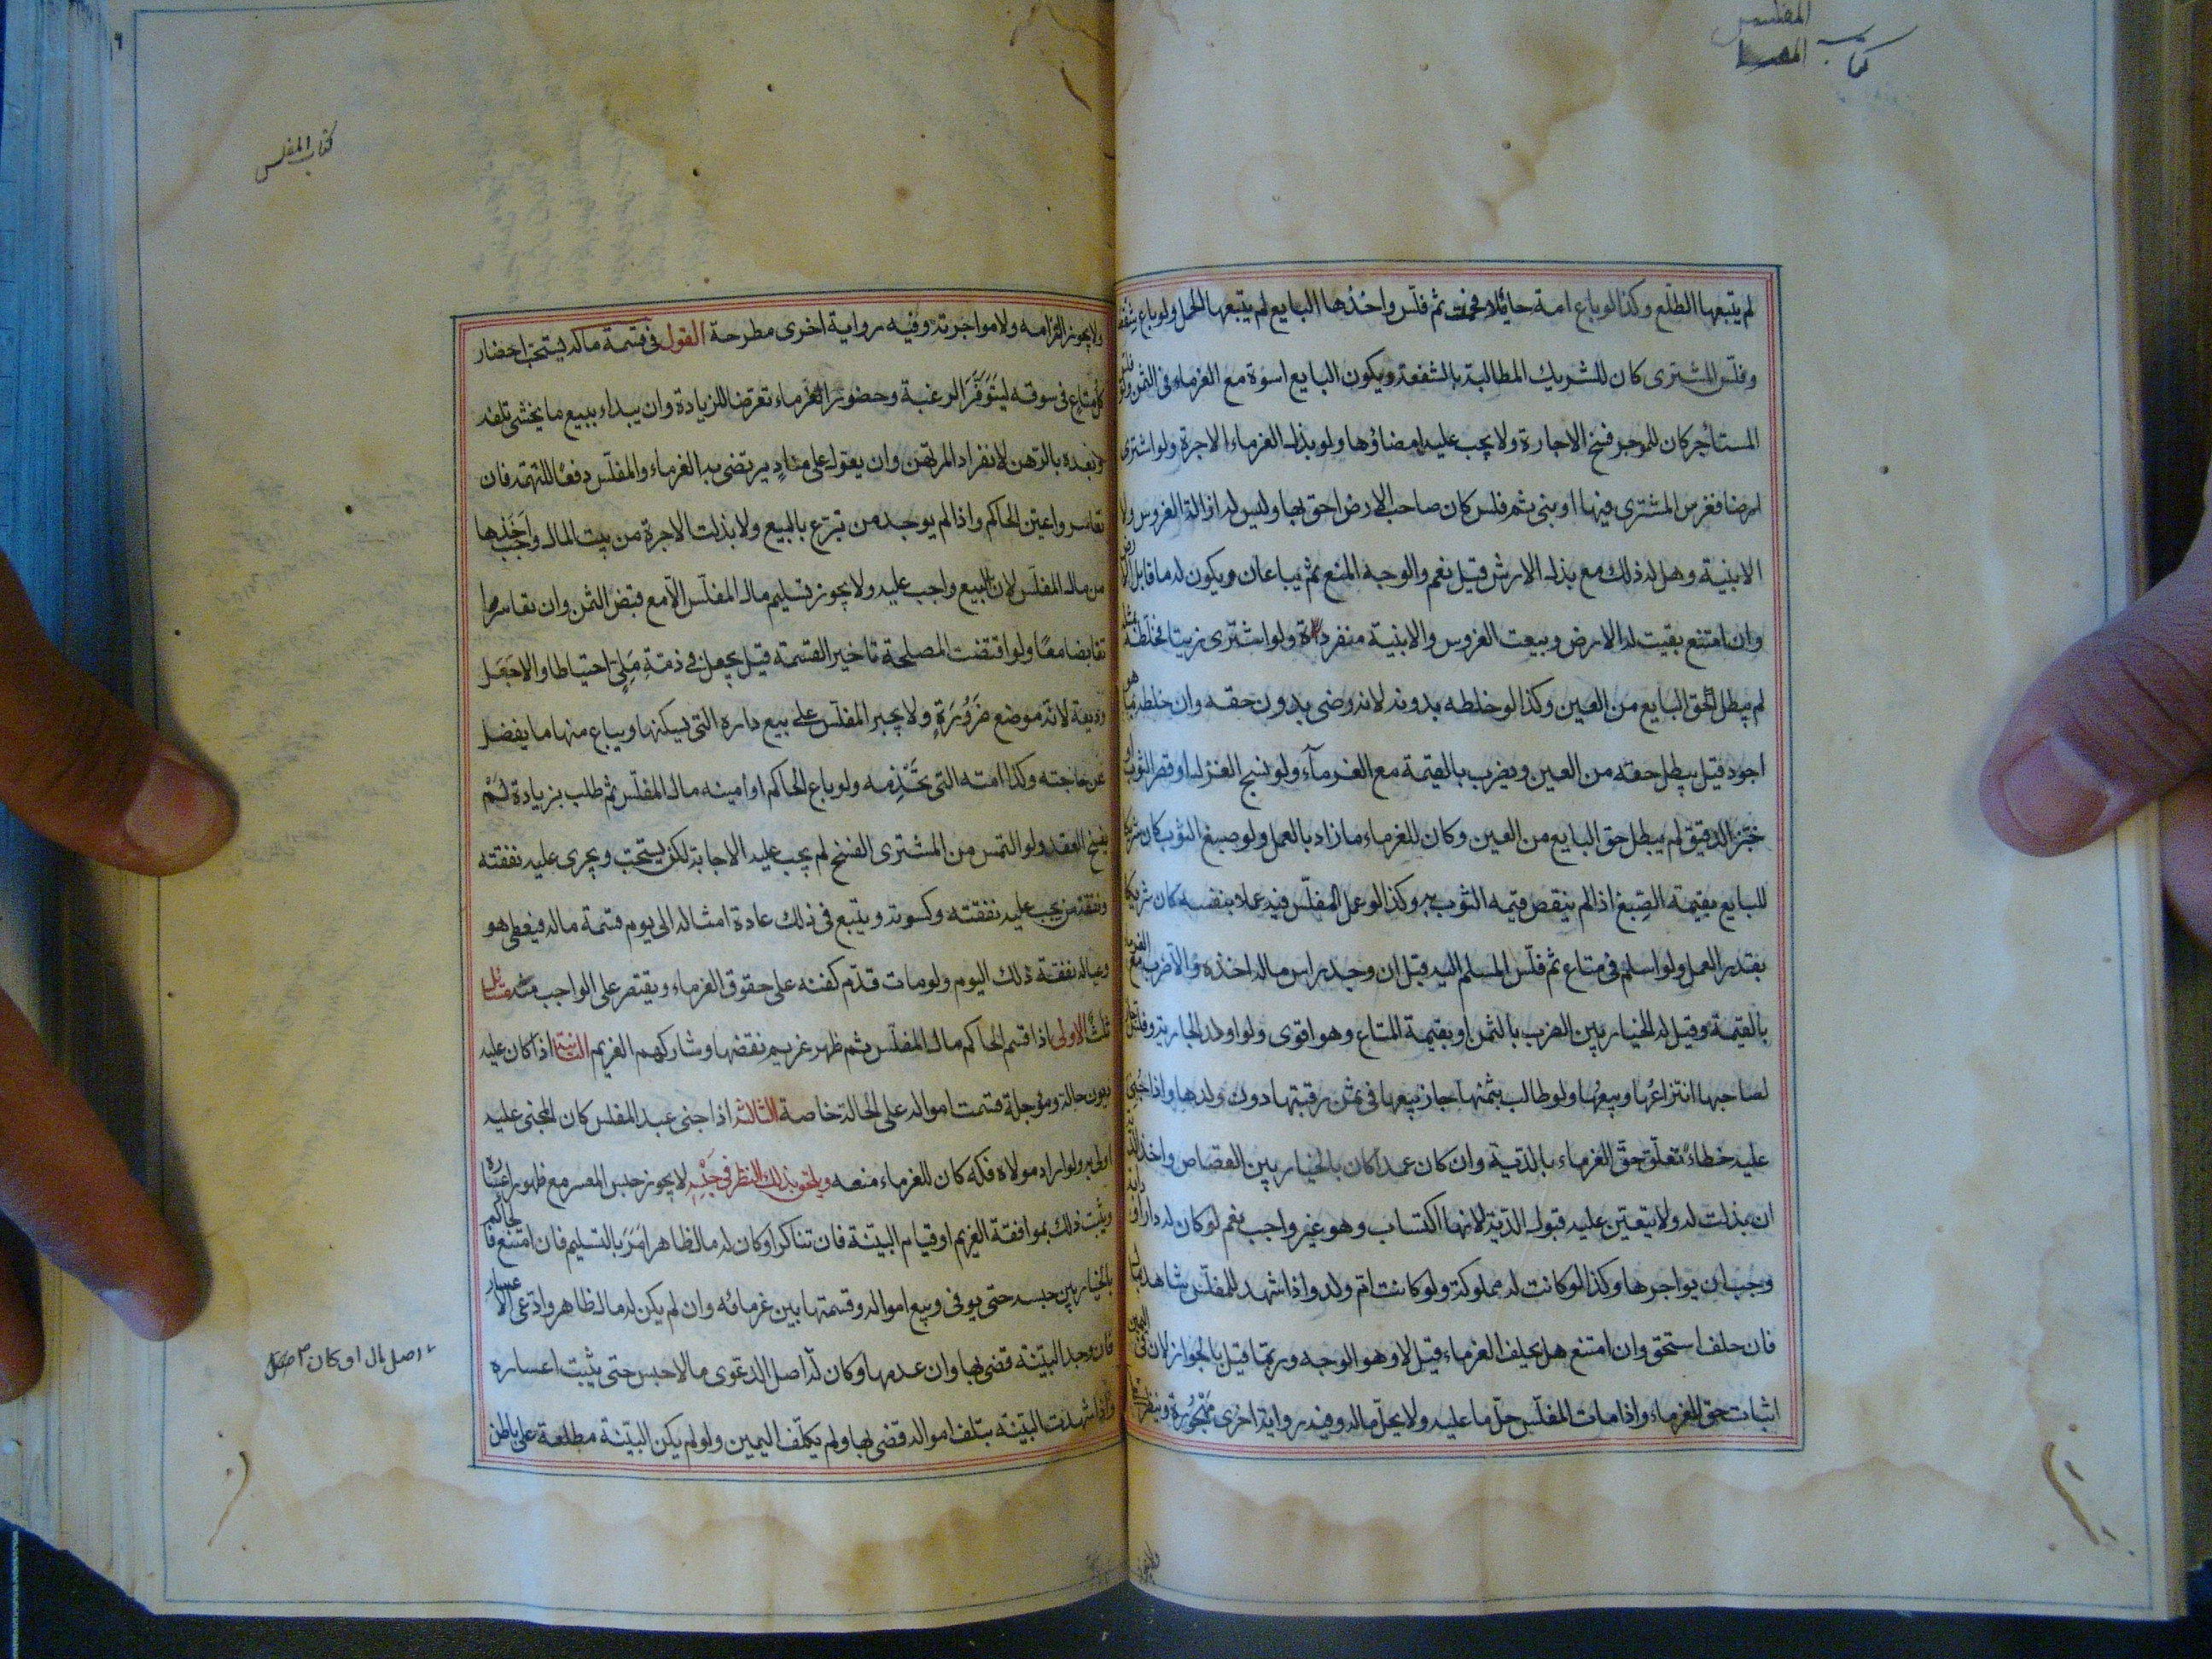 المفلس
كتاب
لم يتبعها الطلع وكذا لو باع امة حائلا فحملت ثم فلّس واخذها البايع لم يتبعها الحمل ولو باع شقصا
وفلّس المشترى كان للشريك المطالبة بالشفعة ويكون البايع اسوة مع الغرماء فى الثمن ولو فلّس
المستأجر كان للموجر فسخ الاجارة ولا يجب عليه امضاؤها ولو بذل الغرماء الاجرة ولو اشترى
ارضا فغرس المشترى فيها او بنى ثم فلس كان صاحب الارض احق بها وليس له ازالة الغروس ولا
الابنية وهل له ذلك مع بذل الارش قيل نعم والوجه المنع ثم يباعان ويكون له ما قابل
وان امتنع بقيت له الارض وبيعت الغروس والابنية منفردة ولو اشترى زيتا فخلطه بمثله
لم يبطل حق البايع من العين وكذا لو خلطه بدونه لانه رضى بدون حقه وان خلطه بما هو
اجود قيل يبطل حقه من العين ويضرب بالقيمة مع الغرماء ولو نسج الغزل او قصر الثوب او
خبز الدقيق لم يبطل حق البايع من العين وكان للغرماء ما زاد بالعمل ولو صبغ الثوب كان شريكا
للبايع بقيمة الصبغ اذا لم ينقص قيمه الثوب به وكذا لو عمل المفلّس فيه عملا بنفسه كان شريكا
بقدر العمل ولو اسلم فى متاع ثم فلّس المسلم اليه قيل ان وجد راس ماله اخذه والا ضرب مع الغرماء
بالقيمة وقيل له الخيار بين الضرب بالثمن او بقيمة المتاع وهو اقوى ولو اولد الجارية وفلّس جاز
لصاحبها انتزاعُها وبيعُها ولو طالب بثمنها جاز بيعها فى ثمن رقبتها دون ولدها واذا جُنِىَ
عليه خطاءً تعلّق حقّ الغرماء بالدّية وان كان عمدا كان بالخيار بين القصاص واخذ الدية
ان بذلت له ولا يتعيّن عليه قبول الدّية لانها اكتساب وهو غير واجب نعم لو كان له دار او دابة
وجب ان يواجرها وكذا لو كانت له مملوكة ولو كانت ام ولد واذا شهد للمفلّس شاهد بمال
فان حلف استحق وان امتنع هل يحلف الغرماء قيل لا وهو الوجه وربّما قيل بالجواز لان فى اليمين
اثبات حق للغرماء واذا مات المفلّس حلّ ما عليه ولا يحلّ ماله وفيه رواية اخرى مَهْجُورة وينظر
كتاب المفلس
ولا يجوز الزامه ولا مواجرته وفيه رواية اخرى مطرحة القول فى قسمة ماله يستحبّ احضار
كل متاع فى سوقه ليتوفّر الرغبة وحضور الغرماء تعرّضا للزيادة وان يبداء ببيع ما يخشى تلفه
وبعده بالرّهن لانفراد المرتهن وان يعوّل على منادٍ يرتضى به الغرماء والمفلّس دفعًا للتهمة فان
تعاسروا عيّن الحاكم واذا لم يوجد من تبرّع بالبيع ولا بذلت الاجرة من بيت المال وجب اَخْذها
من مال المفلّس لان البيع واجب عليه ولا يجوز تسليم مال المفلّس الّا مع قبض الثمن وان تعاسرا
تقابضا معًا ولو اقتضت المصلحة تاخير القسمة قيل يجعل فى ذمّةِ مَلِىّ احتياطا والا جعل
وديعة لانّه موضع ضَرُورَةٍ ولا يجبر المفلّس على بيع داره التى يسكنها ويباع منها ما يفضل
عن حاجته وكذا امته التى تَخْدِمه ولو باع الحاكم او امينه مال المفلّس ثم طلب بزيادة لَمْ
يفسخ العقد ولو التمس من المشترى الفسخ لم يجب عليه الاجابة لكن يستحبّ ويجرى عليه نفقته
ونفقة من يجب عليه نفقته وكسوته ويتبع فى ذلك عادة امثاله الى يوم قسمة ماله فيعطى هو
وعياله نفقة ذلك اليوم ولو مات قدّم كفنه على حقوق الغرماء ويقتصر على الواجب منه مسائل
ثلث الاولى اذا قسم الحاكم مال المفلّس ثم ظهر غريم نقضها وشاركهم الغريم الثانية اذا كان عليه
ديون حالة ومؤجلة قسمت امواله على الحالة خاصة الثالثة اذا جنى عبد المفلس كان المجنى عليه
اولى به ولو اراد مولاه فكه كان للغرماء منعه ويلحق بذلك النظر فى حَبْسِه لا يجوز حبس المعسر مع ظهور اعساره
ويثبت ذلك بموافقة الغريم او قيام البيّنة فان تناكرا وكان له مال ظاهر اُمَرَ بالتسليم فان امتنع فالحاكم
بالخيار بين حبسه حتى يوفى وبيع امواله وقسمتها بين غرمائه وان لم يكن له مال ظاهر وادّعى الاعسار
فان وجد البيّنة قضى بها وان عدمها وكان له اصل الدعوى مالا حبس حتى يثبت اعساره
واذا شهدت البيّنة بتلف امواله قضى بها ولم يكلّف اليمين ولو لم يكن البيّنة مطلعة على باطن
اصل مال او كان اصل